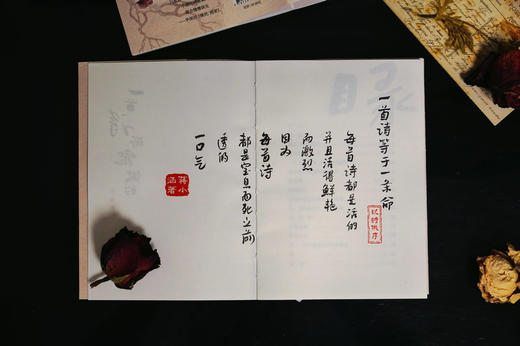 一首诗等于一条命
以诗代序
每首诗都是活的
并且活得鲜艳
而激烈
因为
每首诗
都是窒息而死之前
透的
一口气
蒋小涵著
目录